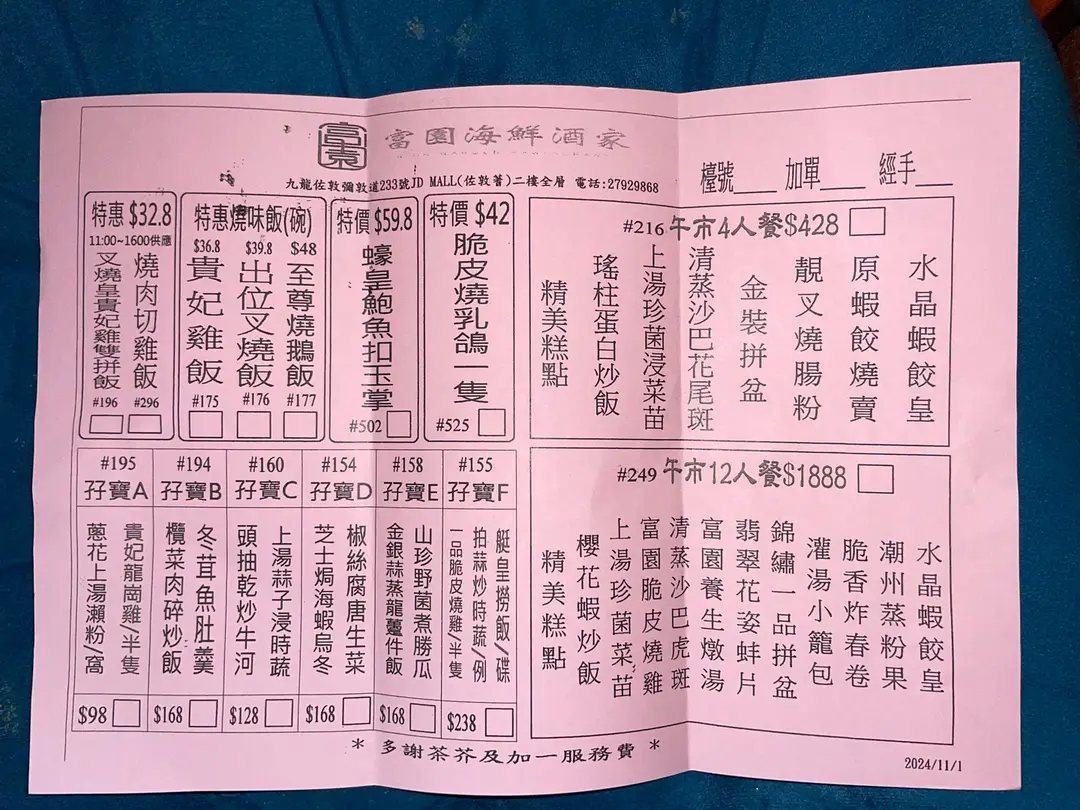 富園海鮮酒家
九龍佐敦彌敦道233號JD MALL(佐敦薈)二樓全層 電話:27929868
檯號 加單 經手
特惠 $32.8
11:00~1600供應
燒肉切雞飯
叉燒皇貴妃雞雙拼飯
#196 #296
特惠燒味飯(碗)
$36.8 $39.8 $48
至尊燒鵝飯
出位叉燒飯
貴妃雞飯
#175 #176 #177
特價 $59.8
蠔皇鮑魚扣玉掌
#502
特價 $42
脆皮燒乳鴿一隻
#525
#216 午市4人餐$428
水晶蝦餃皇
原蝦餃燒賣
靚叉燒腸粉
金裝拼盆
清蒸沙巴花尾斑
上湯珍菌浸菜苗
瑤柱蛋白炒飯
精美糕點
#195
孖寶A
貴妃龍崗雞/半隻
蔥花上湯瀨粉/窩
$98
#194
孖寶B
冬茸魚肚羹
欖菜肉碎炒飯
$168
#160
孖寶C
上湯蒜子浸時蔬
頭抽乾炒牛河
$128
#154
孖寶D
椒絲腐唐生菜
芝士焗海蝦烏冬
$168
#158
孖寶E
山珍野菌煮勝瓜
金銀蒜蒸龍躉件飯
$168
#155
孖寶F
艇皇撈飯/碟
拍蒜炒時蔬/例
一品脆皮燒雞/半隻
$238
#249 午市12人餐$1888
水晶蝦餃皇
潮州蒸粉果
脆香炸春卷
灌湯小籠包
錦繡一品拼盆
翡翠花姿蚌片
富園養生燉湯
清蒸沙巴虎斑
富園脆皮燒雞
上湯珍菌菜苗
櫻花蝦炒飯
精美糕點
* 多謝茶芥及加一服務費 *
2024/11/1